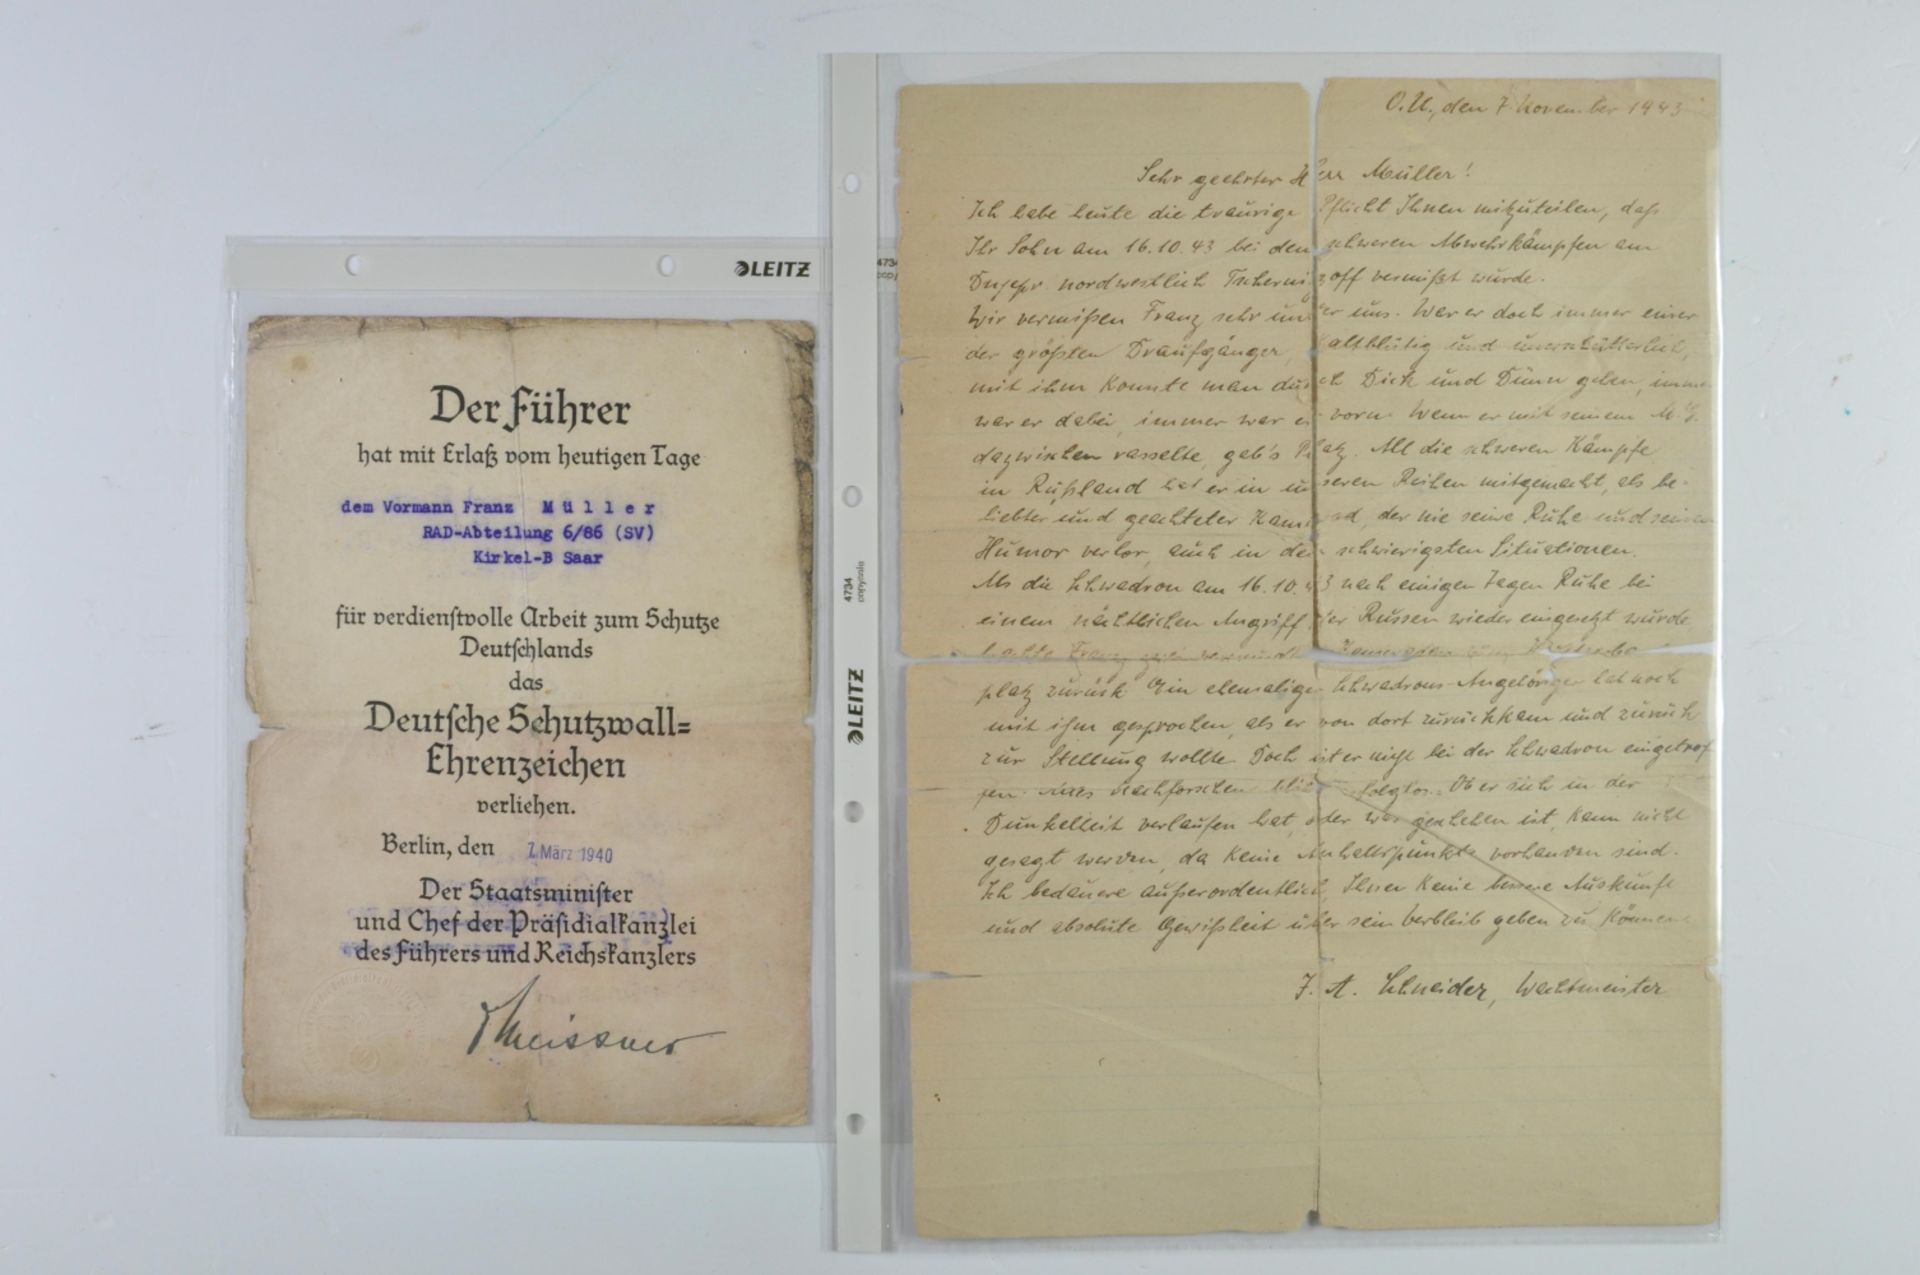 LEITZ
Der Führer
hat mit Erlaß vom heutigen Tage
dem Vormann Franz Müller
RAD-Abteilung 6/86 (SV)
Kirkel-B Saar
für verdienstvolle Arbeit zum Schutze
Deutschlands
das
Deutsche Schutzwall=
Ehrenzeichen
verliehen.
Berlin, den 7. März 1940
Der Staatsminister
und Chef der Präsidialkanzlei
des Führers und Reichskanzlers
Meissner
4734
LEITZ
O.U., den 7. November 1943
Sehr geehrter Herr Müller!
Ich habe heute die traurige Pflicht Ihnen mitzuteilen, daß
Ihr Sohn am 16.10.43 bei den schweren Abwehrkämpfen am
Dnjepr nordwestlich vermißt wurde.
Wir vermißen Franz sehr unter uns. War er doch immer einer
der größten Draufgänger, kaltblütig und unerschütterlich,
mit ihm konnte man durch Dick und Dünn gehen, immer
war er dabei, immer war er vorn. Wenn er mit seinem M.G.
dazwischen rasselte, gab's Platz. All die schweren Kämpfe
in Rußland hat er in unseren Reihen mitgemacht, als be-
liebter und geachteter Kamerad, der nie seine Ruhe und seinen
Humor verlor, auch in den schwierigsten Situationen.
Als die Schwadron am 16.10.43 nach einigen Tagen Ruhe bei
einem nächtlichen Angriff der Russen wieder eingesetzt wurde
Franz Kameraden
platz zurück. Ein ehemaliger Schwadrons-Angehöriger hat noch
mit ihm gesprochen, als er von dort zurückkam und zurück
zur Stellung wollte. Doch ist er nicht bei der Schwadron eingetrof
fen. Nachforschen blieb erfolglos. Ob er sich in der
Dunkelheit verlaufen hat, oder was geschehen ist, kann nicht
gesagt werden, da keine Anhaltspunkte vorhanden sind.
Ich bedauere außerordentlich, Ihnen keine bessere Auskunft
und absolute Gewißheit über sein Verbleib geben zu können.
J. A. Schneider, Wachtmeister